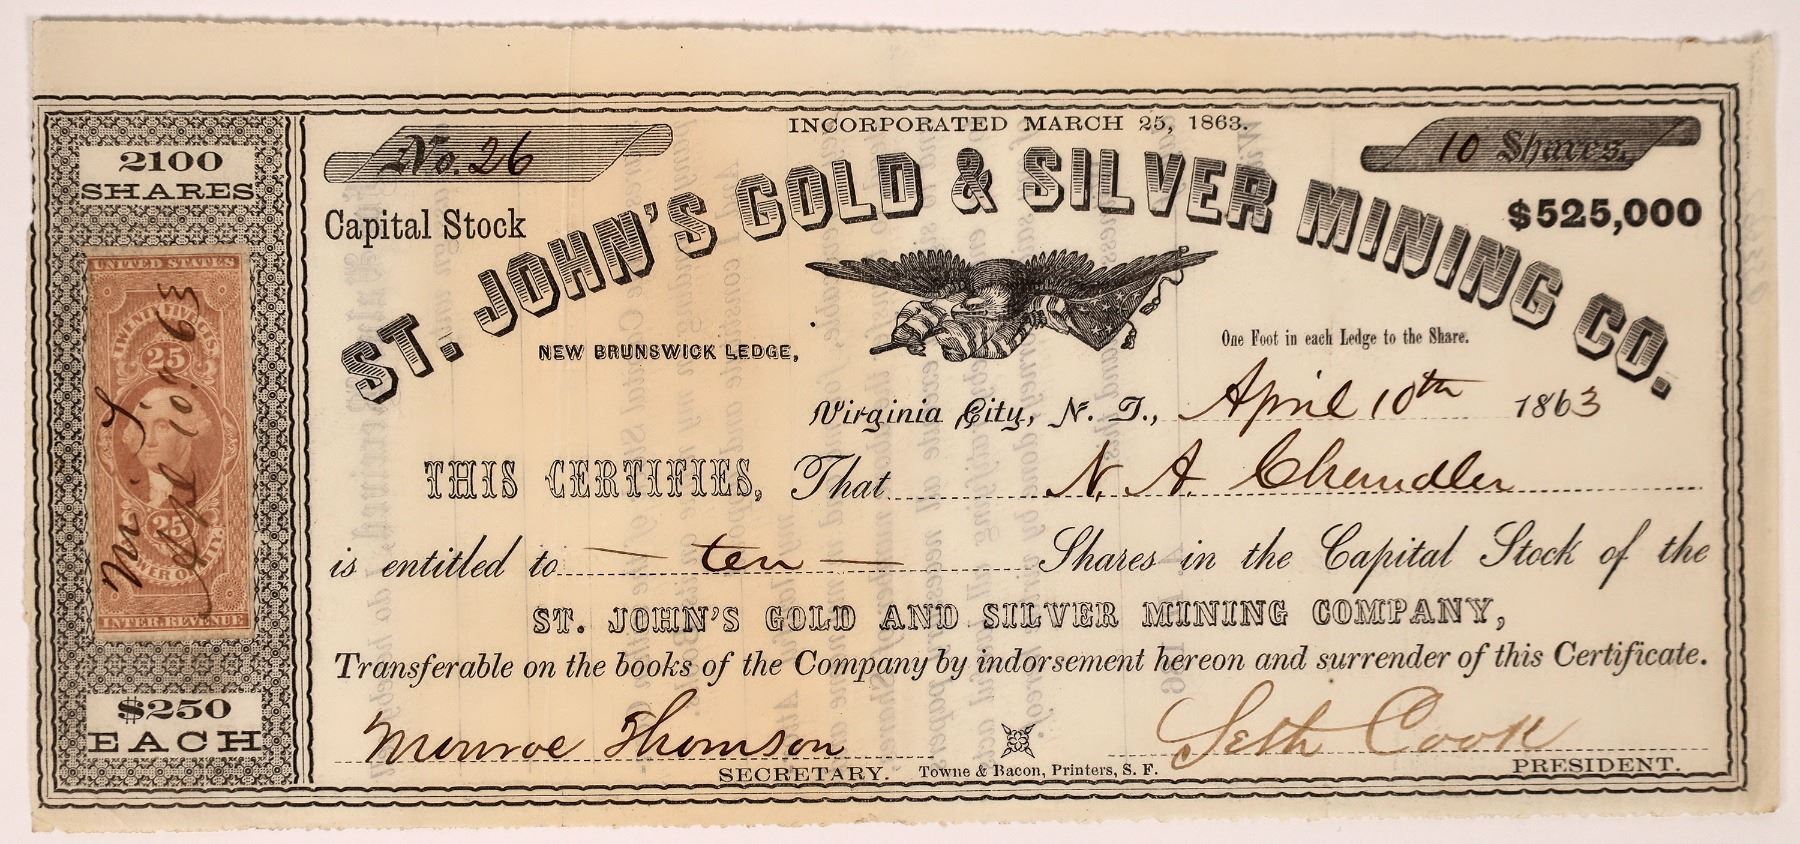 INCORPORATED MARCH 25, 1863.
No. 26
10 Shares.
2100
SHARES
Capital Stock
$525,000
ST. JOHN'S GOLD & SILVER MINING CO.
NEW BRUNSWICK LEDGE,
One Foot in each Ledge to the Share.
Virginia City, N. T., April 10th 1863
THIS CERTIFIES, That N. A. Chandler
is entitled to — ten — Shares in the Capital Stock of the
ST. JOHN'S GOLD AND SILVER MINING COMPANY,
Transferable on the books of the Company by indorsement hereon and surrender of this Certificate.
Monroe Thomson
SECRETARY.
Towne & Bacon, Printers, S. F.
Seth Cook
PRESIDENT.
$250
EACH
UNITED STATES
TWENTY FIVE CTS.
25
25
INTER. REVENUE
M. T.
Apl 10. 63